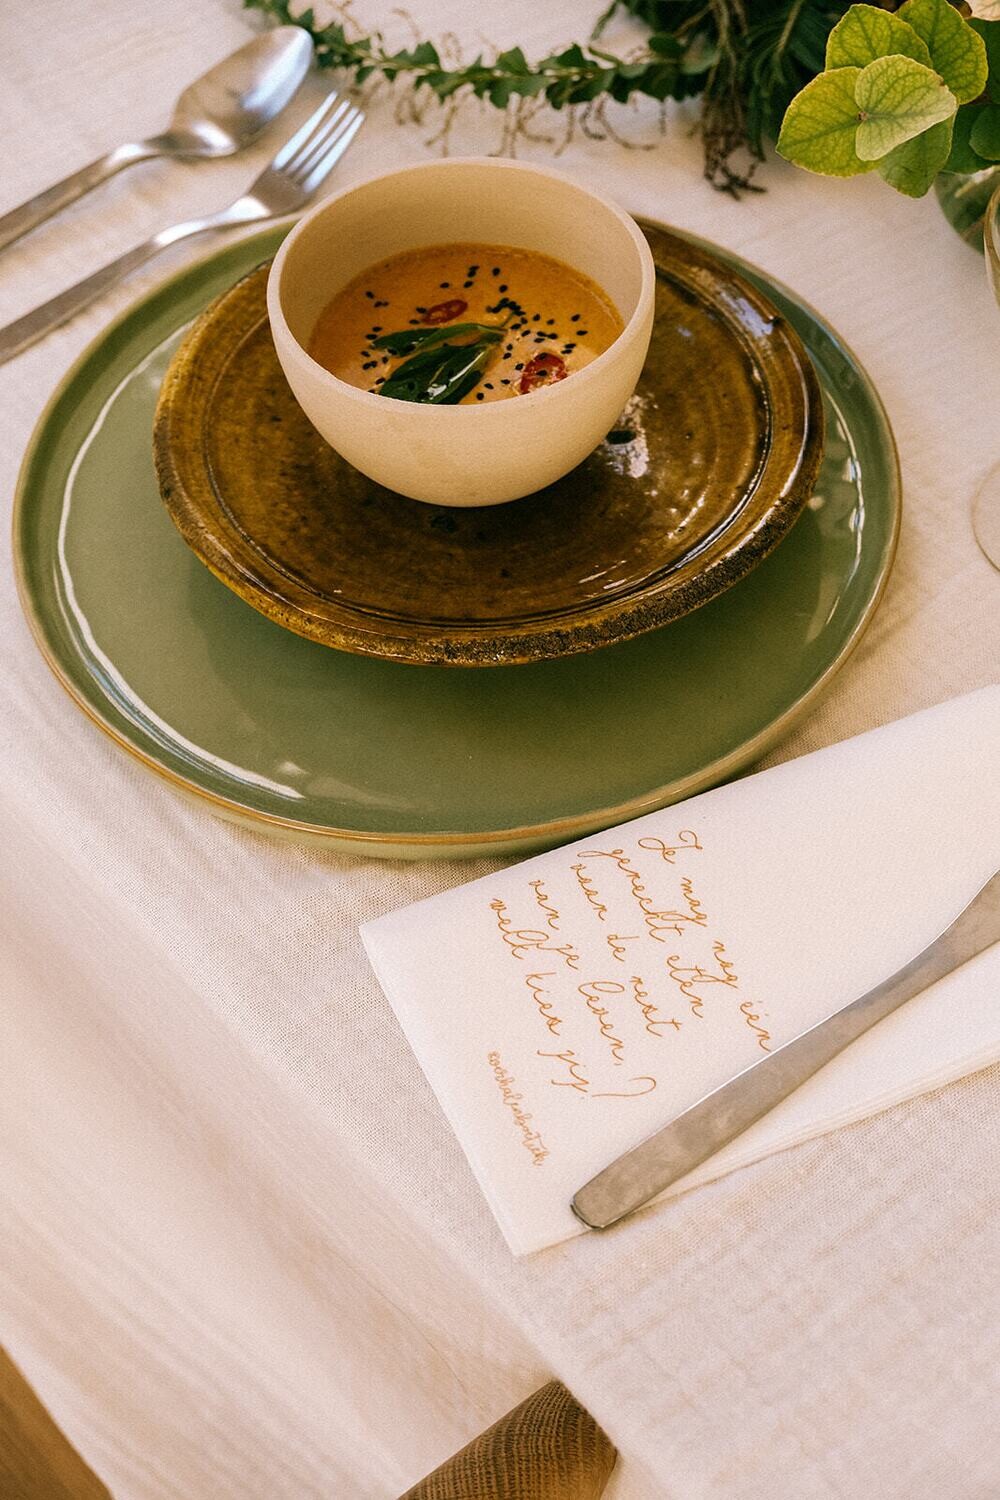 Je mag nog één
gerecht eten
voor de rest
van je leven,
welk kies jij?
@verhalenboetiek